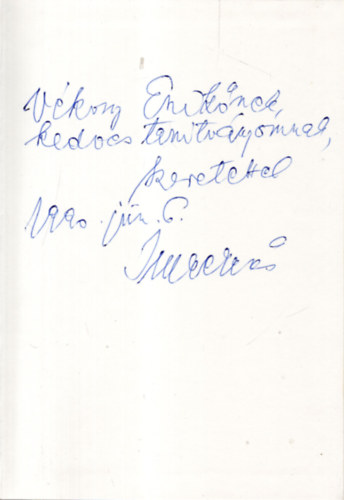 Vékony Enikőnek,
kedves tanítványomnak,
szeretettel
1990. jún. 6.